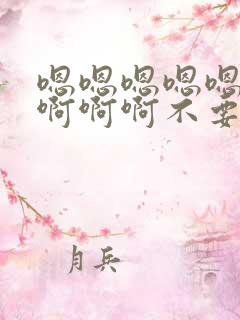 嗯嗯嗯嗯嗯
啊啊啊不要
月兵